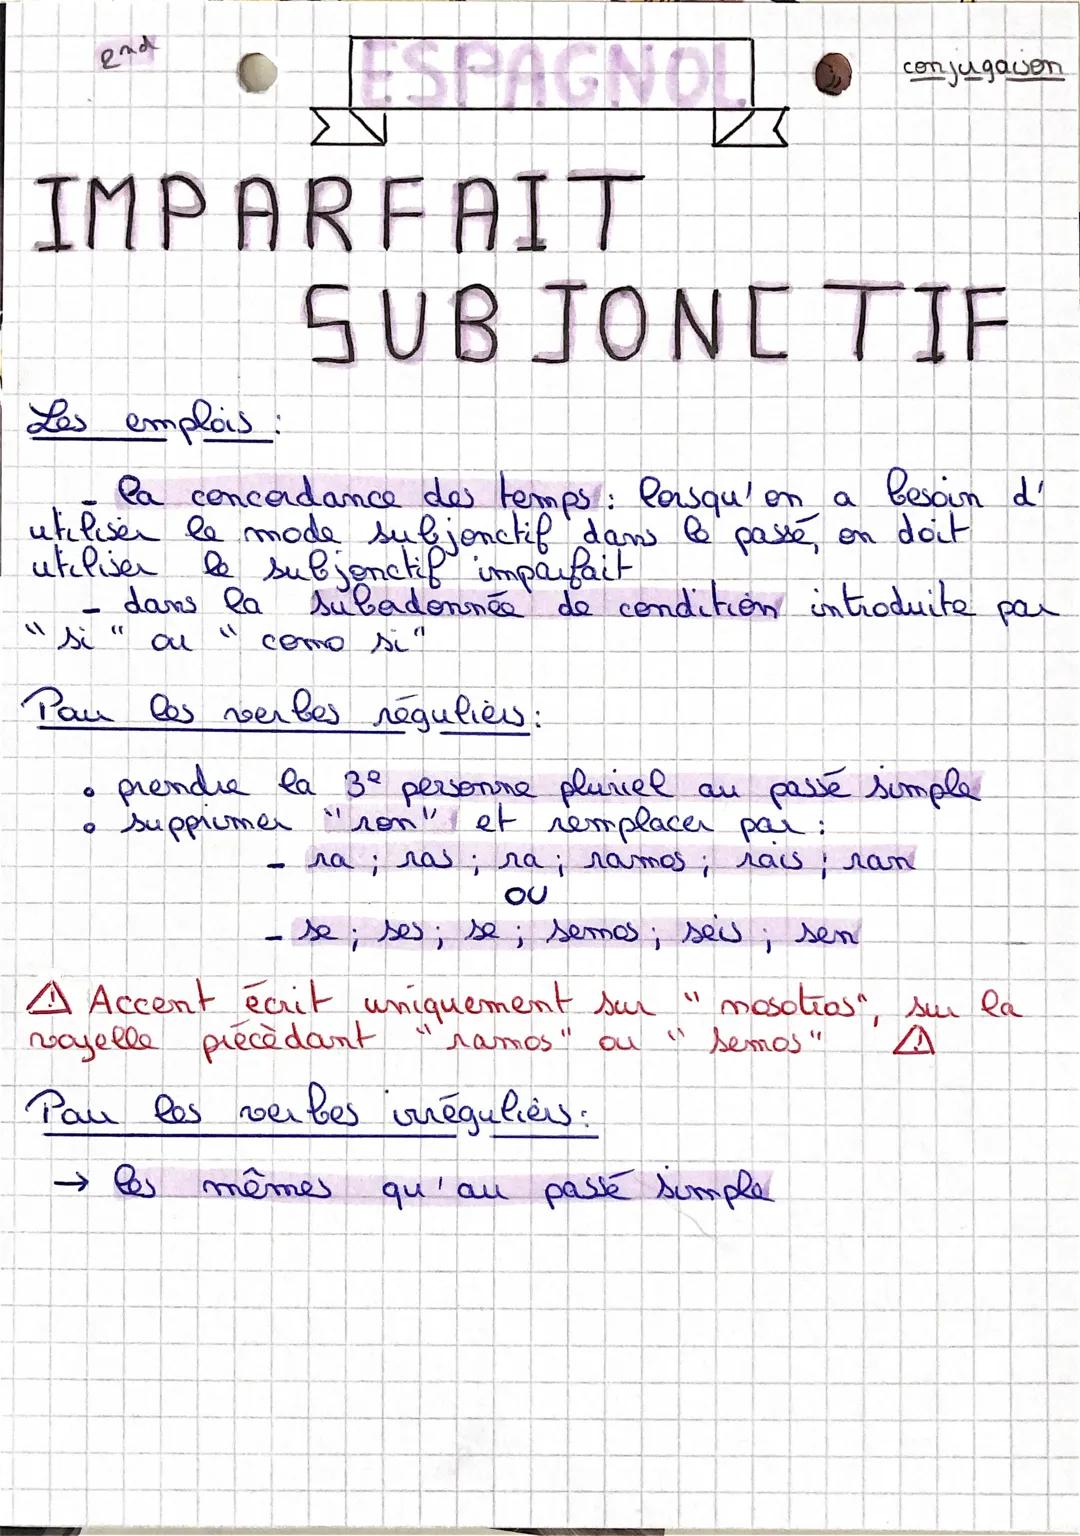 2nd
ESPAGNOL
conjugaison
IMPARFAIT
SUBJONCTIF
Les emplois :
- la concordance des temps : lorsqu'on a besoin d'
utiliser le mode subjonctif dans le passé, on doit
utiliser le subjonctif imparfait
- dans la subordonnée de condition introduite par
"si" ou "como si"
Pour les verbes réguliers :
• prendre la 3e personne pluriel au passé simple
• supprimer "ron" et remplacer par :
- ra ; ras ; ra ; ramos ; rais ; ran
OU
- se ; ses ; se ; semos ; seis ; sen
⚠ Accent écrit uniquement sur "nosotros", sur la
voyelle précédant "ramos" ou "semos" ⚠
Pour les verbes irréguliers :
→ les mêmes qu'au passé simple